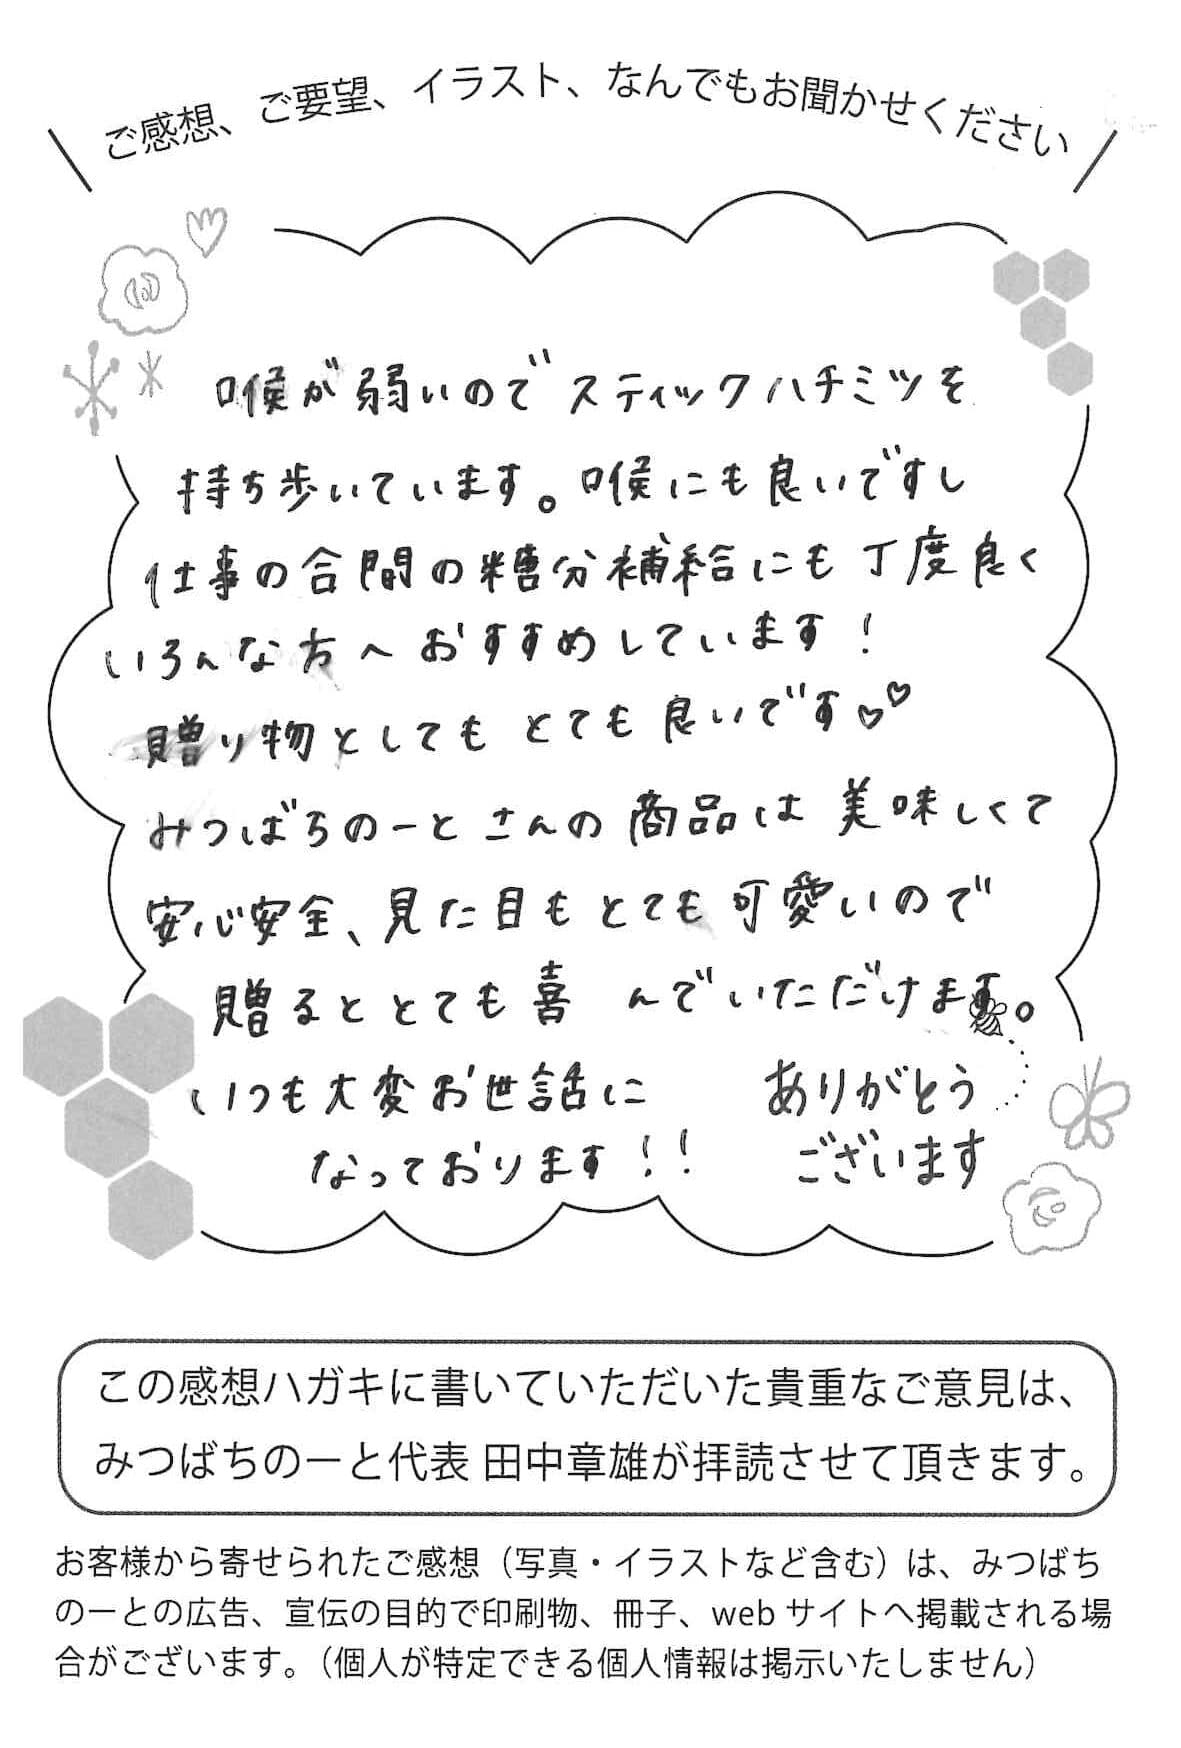 ご感想、ご要望、イラスト、なんでもお聞かせください
喉が弱いのでスティックハチミツを
持ち歩いています。喉にも良いですし
仕事の合間の糖分補給にも丁度良く
いろんな方へおすすめしています！
贈り物としてもとても良いです♡♡
みつばちのーとさんの商品は美味しくて
安心安全、見た目もとても可愛いので
贈るととても喜んでいただけます。
いつも大変お世話に
なっております!!
ありがとう
ございます
この感想ハガキに書いていただいた貴重なご意見は、
みつばちのーと代表 田中章雄が拝読させて頂きます。
お客様から寄せられたご感想（写真・イラストなど含む）は、みつばち
のーとの広告、宣伝の目的で印刷物、冊子、web サイトへ掲載される場
合がございます。（個人が特定できる個人情報は掲示いたしません）